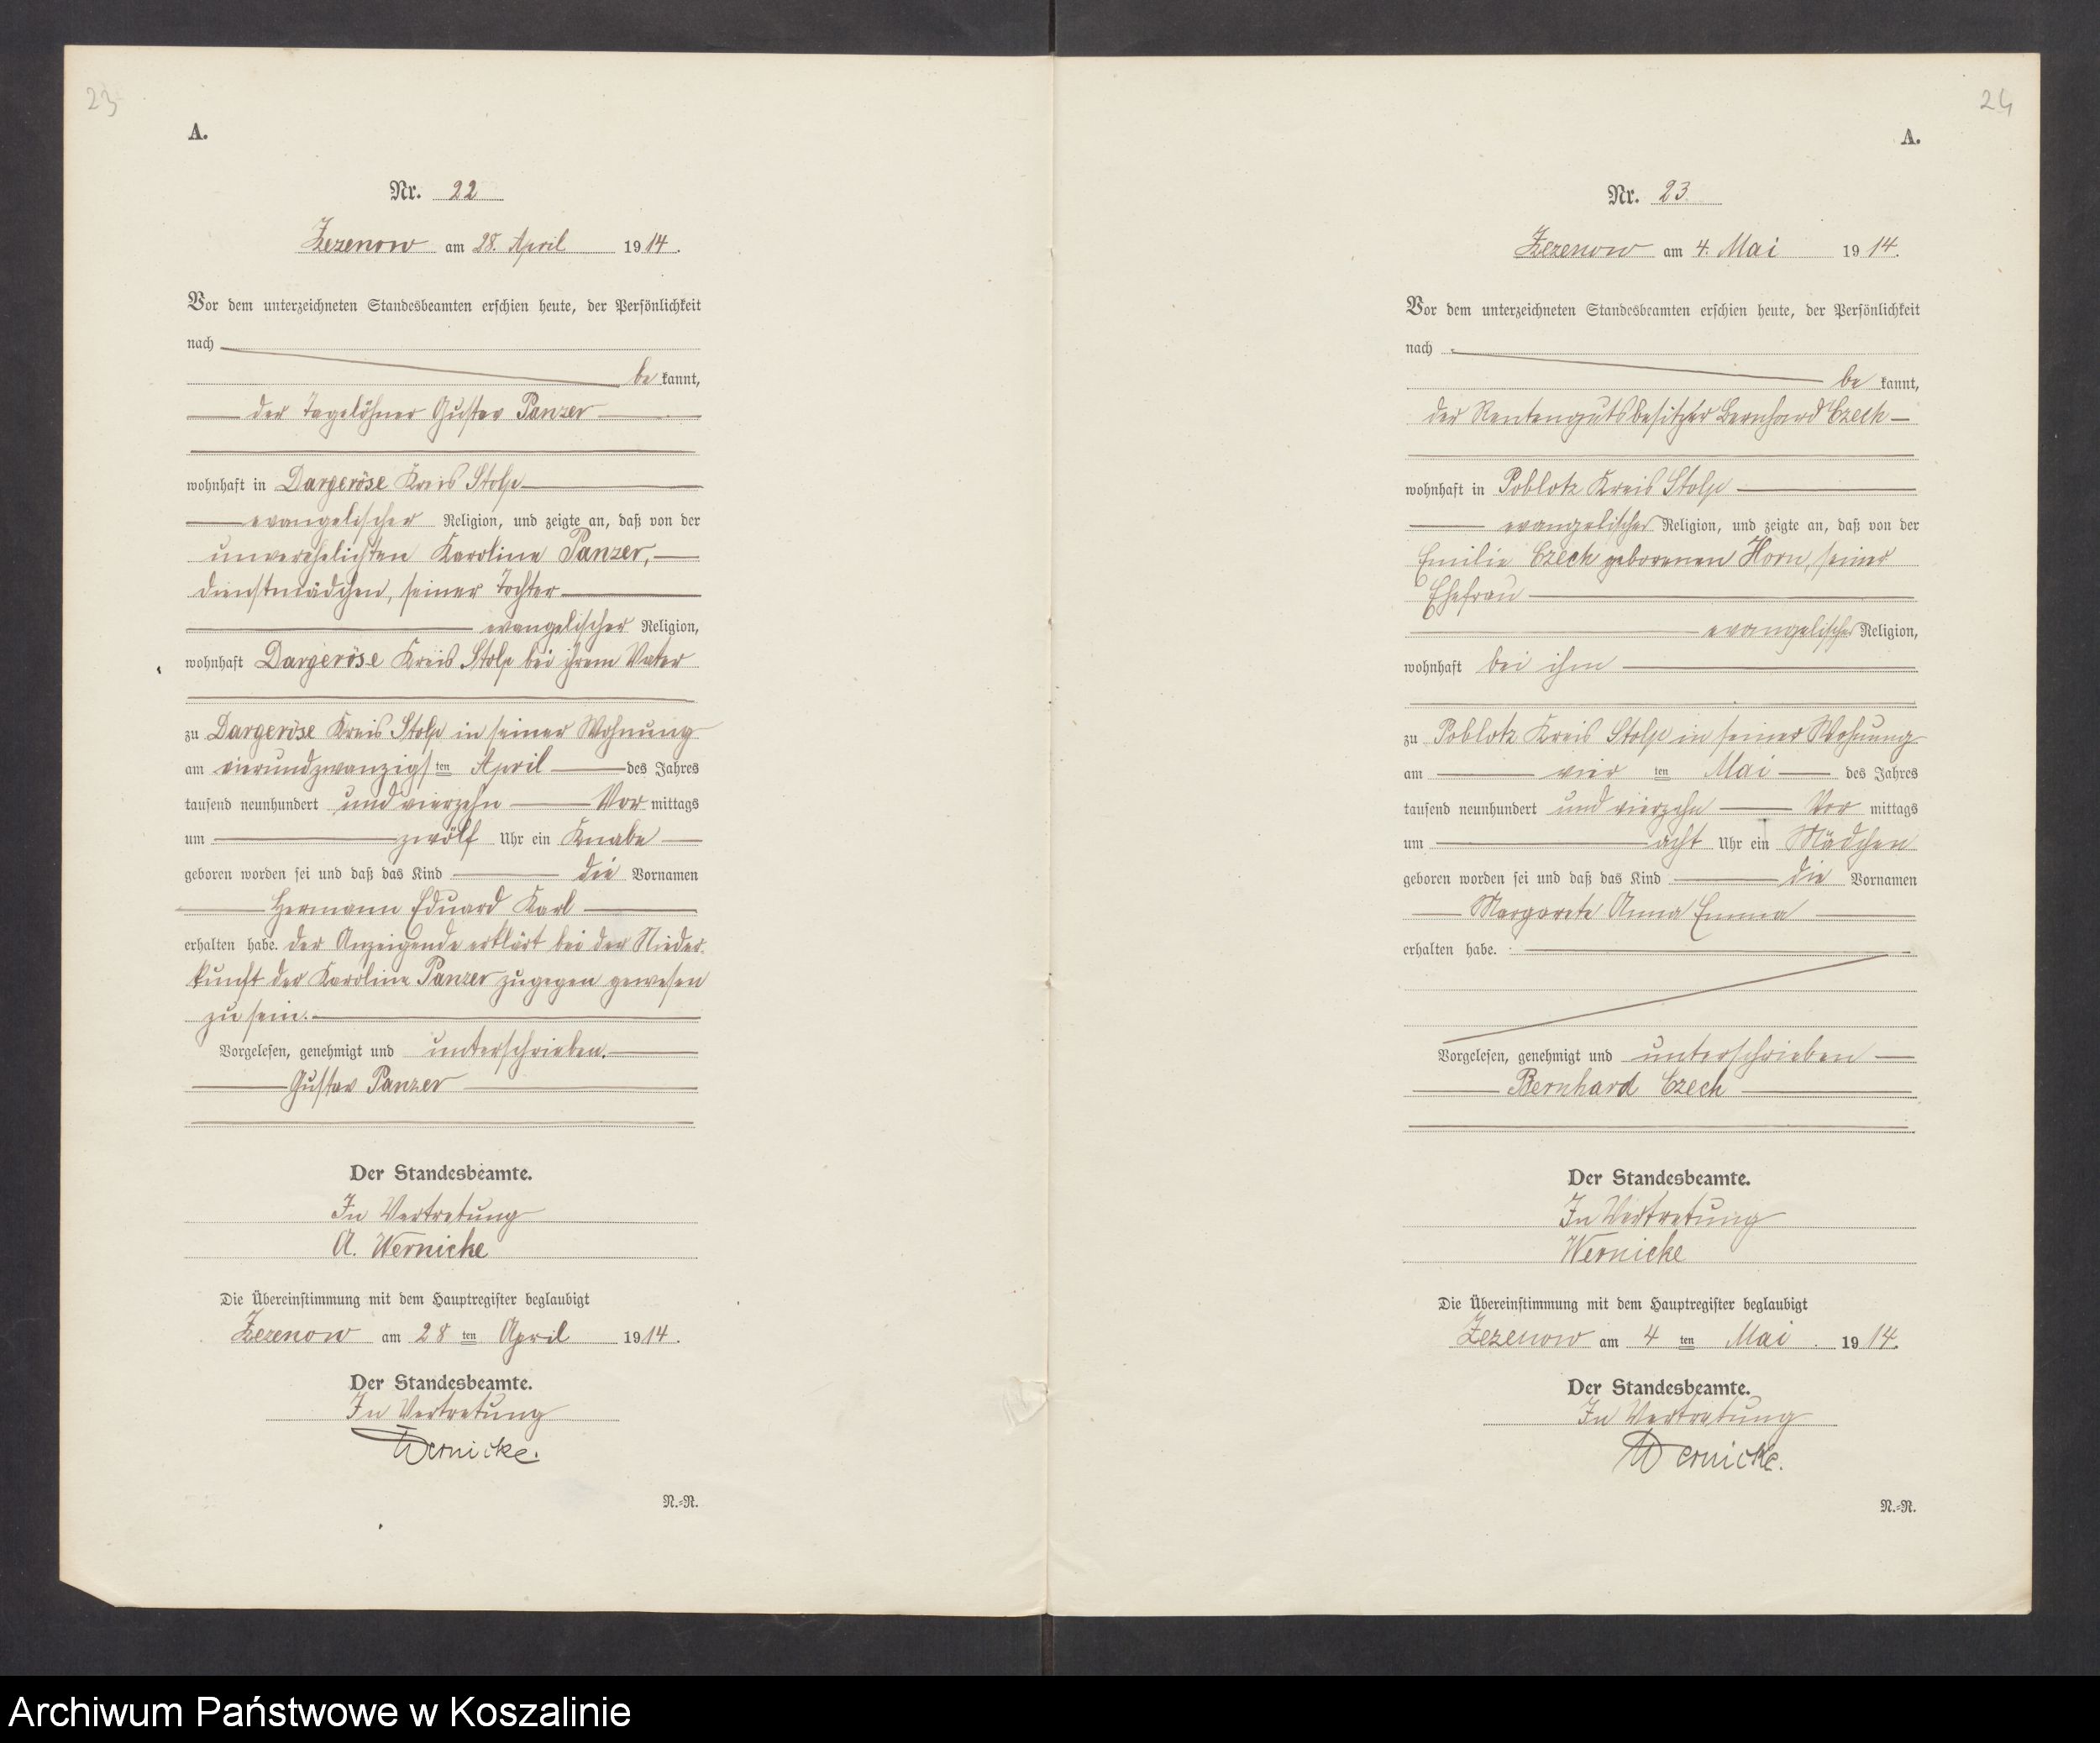 23
A.
Nr. 22
Zezenow am 28. April 1914.
Vor dem unterzeichneten Standesbeamten erschien heute, der Persönlichkeit
nach
be kannt,
der Tagelöhner Gustav Panzer
wohnhaft in Dargeröse Kreis Stolp
evangelischer Religion, und zeigte an, daß von der
unverehelichten Karoline Panzer,
Dienstmädchen, seiner Tochter
evangelischer Religion,
wohnhaft Dargeröse Kreis Stolp bei ihrem Vater
zu Dargeröse Kreis Stolp in seiner Wohnung
am vierundzwanzigsten April des Jahres
tausend neunhundert und vierzehn Vor mittags
um zwölf Uhr ein Knabe
geboren worden sei und daß das Kind die Vornamen
Hermann Eduard Karl
erhalten habe. Der Anzeigende erklärt bei der Nieder-
kunft der Karoline Panzer zugegen gewesen
zu sein.
Vorgelesen, genehmigt und unterschrieben.
Gustav Panzer
Der Standesbeamte.
In Vertretung
A. Wernicke
Die Übereinstimmung mit dem Hauptregister beglaubigt
Zezenow am 28 ten April 1914.
Der Standesbeamte.
In Vertretung
Wernicke.
N.-R.
24
A.
Nr. 23.
Zezenow am 4. Mai 1914.
Vor dem unterzeichneten Standesbeamten erschien heute, der Persönlichkeit
nach
be kannt,
der Rentengutsbesitzer Bernhard Czech
wohnhaft in Poblotz Kreis Stolp
evangelischer Religion, und zeigte an, daß von der
Emilie Czech geborenen Horn, seiner
Ehefrau
evangelischer Religion,
wohnhaft bei ihm
zu Poblotz Kreis Stolp in seiner Wohnung
am vier ten Mai des Jahres
tausend neunhundert und vierzehn Vor mittags
um acht Uhr ein Mädchen
geboren worden sei und daß das Kind die Vornamen
Margarete Anna Emma
erhalten habe.
Vorgelesen, genehmigt und unterschrieben
Bernhard Czech
Der Standesbeamte.
In Vertretung
Wernicke
Die Übereinstimmung mit dem Hauptregister beglaubigt
Zezenow am 4 ten Mai 1914.
Der Standesbeamte.
In Vertretung
Wernicke.
N.-R.
Archiwum Państwowe w Koszalinie